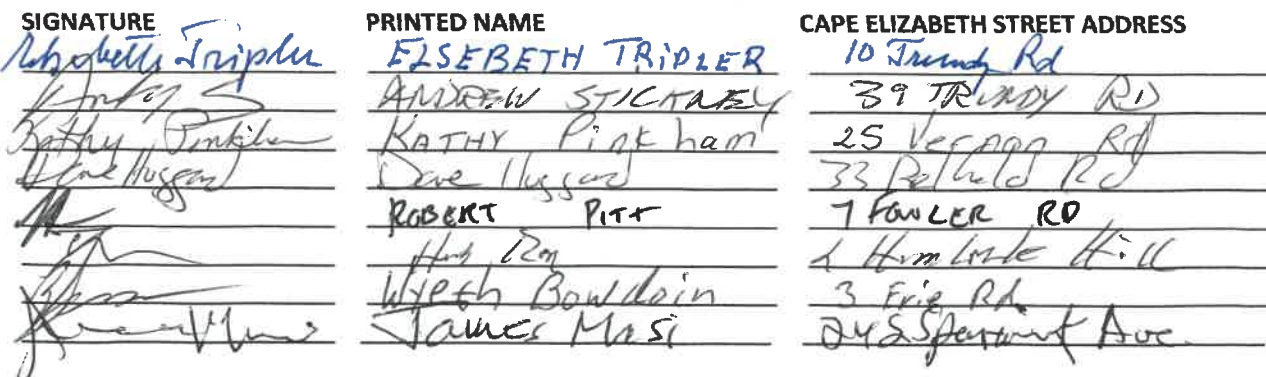 SIGNATURE PRINTED NAME CAPE ELIZABETH STREET ADDRESS
Elsebeth Tripler ELSEBETH TRIPLER 10 Trundy Rd
ANDREW STICKNEY 39 TRUNDY RD
Kathy Pinkham KATHY Pinkham 25 Vernon Rd
Dave Huggard Dave Huggard 33 Rd
ROBERT PITT 7 FOWLER RD
Hill
Wyeth Bowdoin 3 Erie Rd
James Masi Ave.